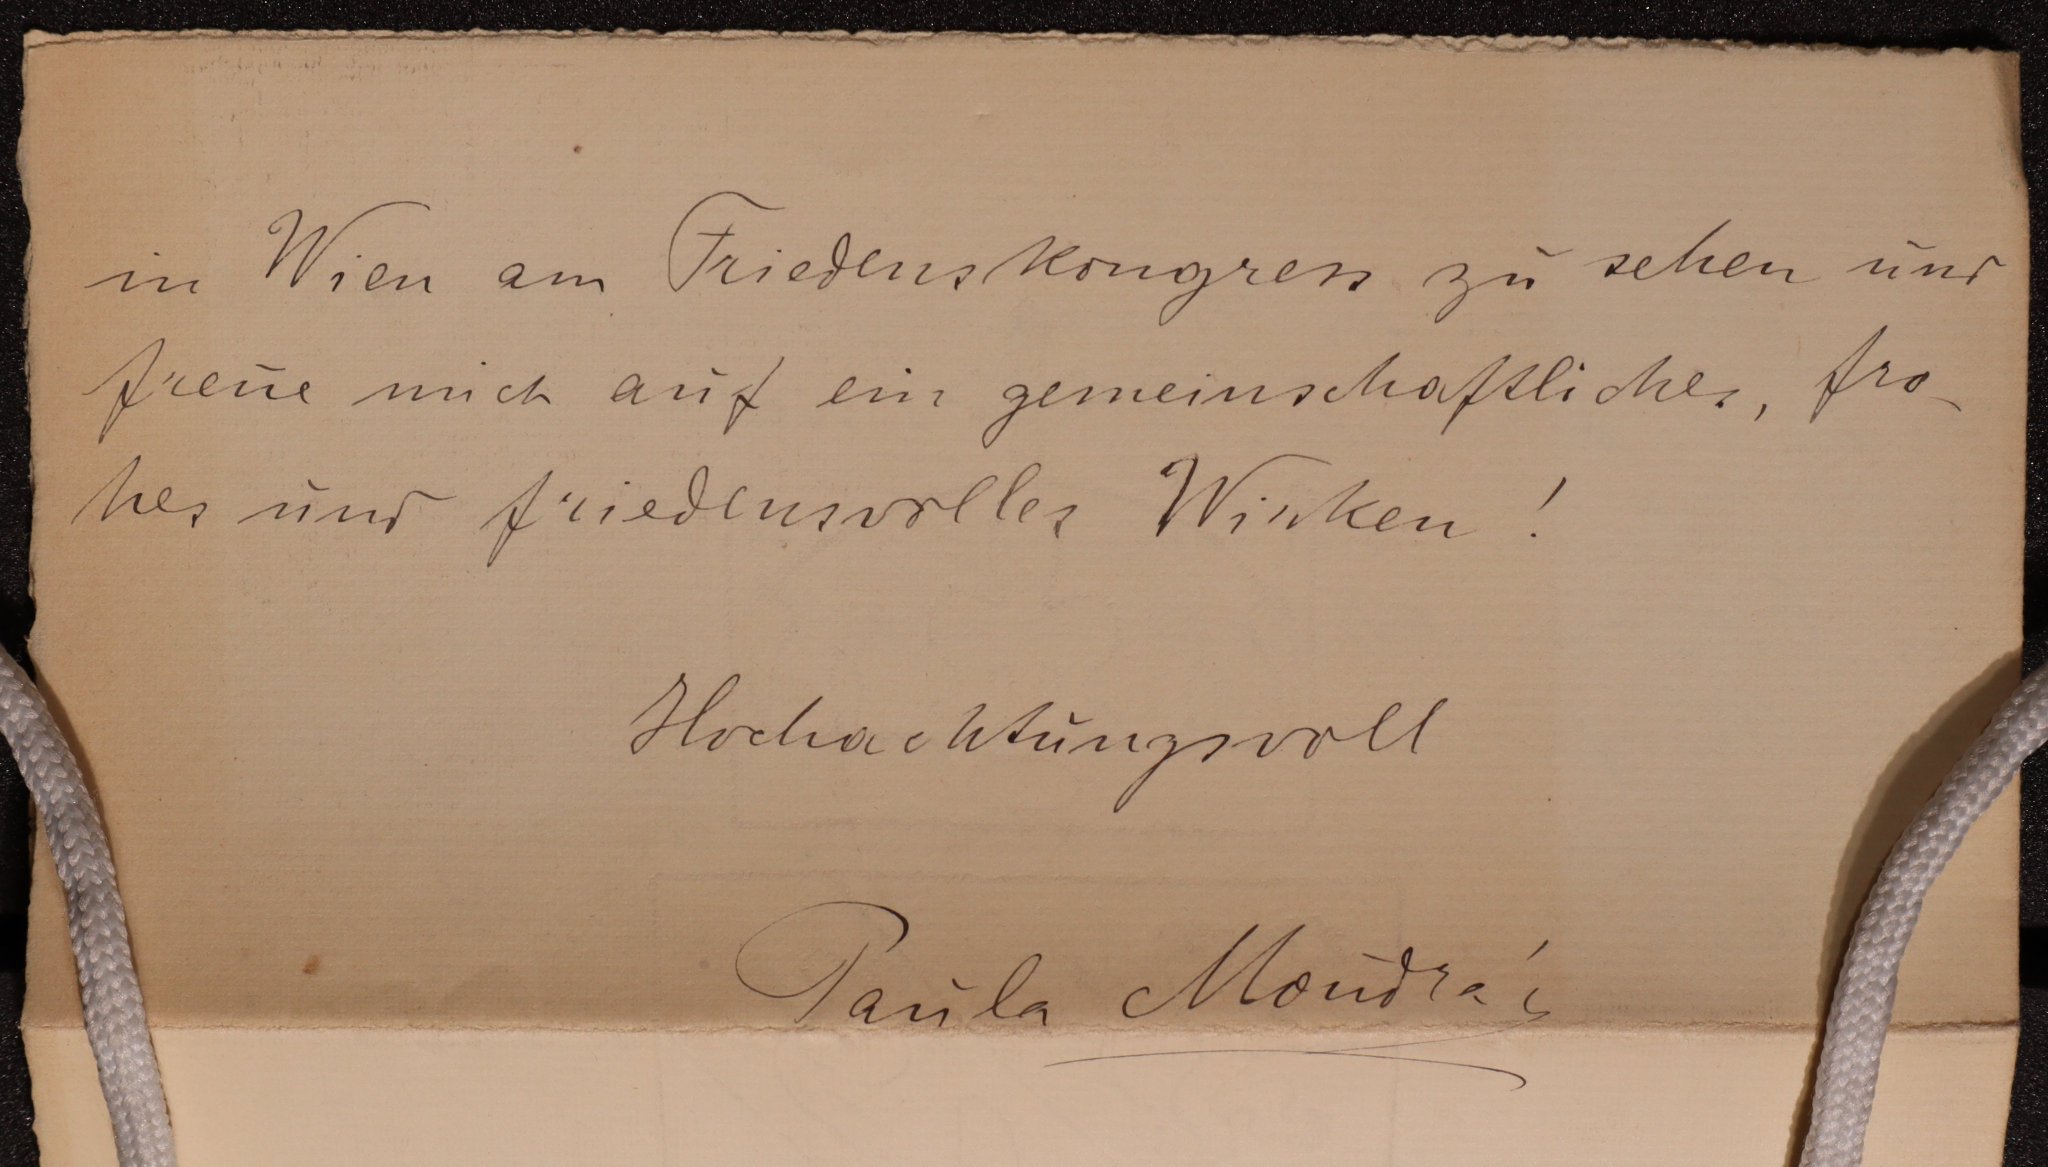 in Wien am Friedenskongress zu sehen und
freue mich auf ein gemeinschaftliches, fro-
hes und friedensvolles Wirken!
Hochachtungsvoll
Paula Moudrá